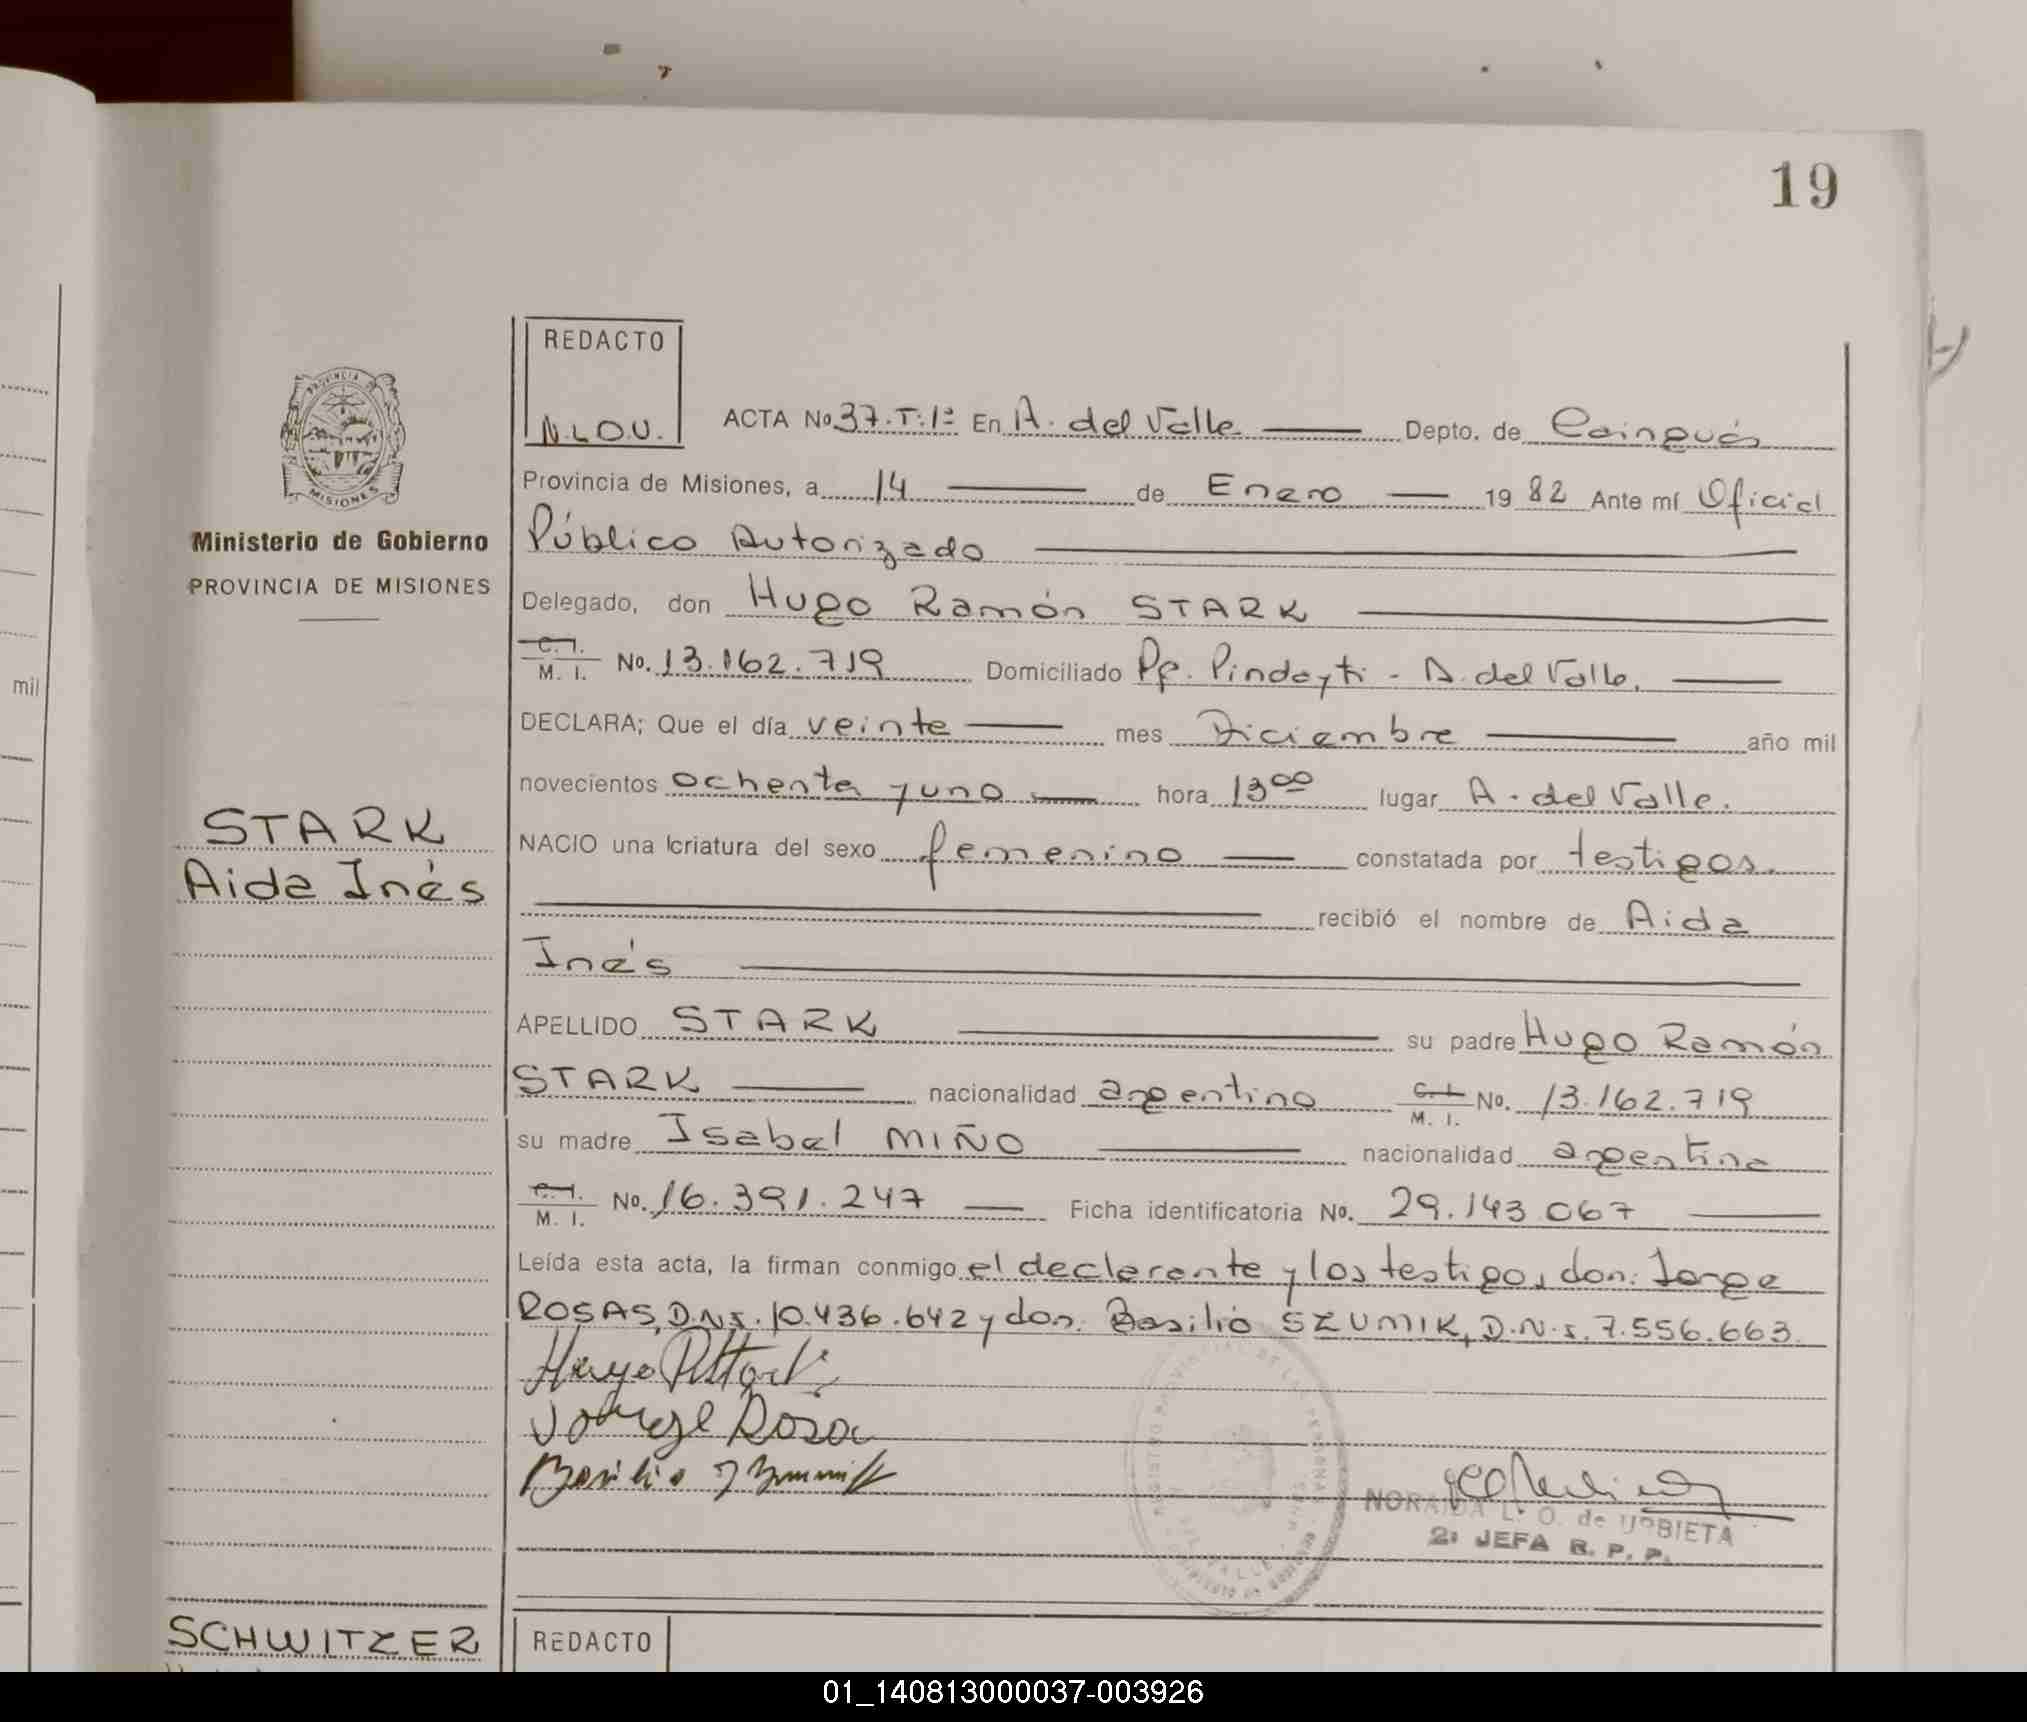 19
REDACTO
N.L.O.U.
ACTA No 37.T:1º En A. del Valle Depto. de Cainguás
Provincia de Misiones, a 14 de Enero 19 82 Ante mí Oficial
Público Autorizado
PROVINCIA DE
MISIONES
Ministerio de Gobierno
PROVINCIA DE MISIONES
Delegado, don Hugo Ramón STARK
C. I.
M. I. No. 13.162.719 Domiciliado Pje. Pindayti - A. del Valle.
DECLARA; Que el día veinte mes Diciembre año mil
novecientos ochenta y uno hora 13 00 lugar A. del Valle.
STARK
Aida Inés
NACIO una criatura del sexo femenino constatada por testigos.
recibió el nombre de Aida
Inés
APELLIDO STARK su padre Hugo Ramón
STARK nacionalidad argentino C. I. M. I. No. 13.162.719
su madre Isabel MIÑO nacionalidad argentina
C. I.
M. I. No. 16.391.247 Ficha identificatoria No. 29.143.067
Leída esta acta, la firman conmigo el declarante y los testigos, don: Jorge
ROSAS, D.N.I. 10.436.642 y don. Basilio SZUMIK, D.N.I. 7.556.663.
Hugo R Stark
Jorge Rosa
Basilio
REGISTRO PROVINCIAL DE LAS PERSONAS
DEL VALLE
NORAIDA L. O. de URBIETA
2ª JEFA R. P. P.
SCHWITZER
REDACTO
mil
01_140813000037-003926